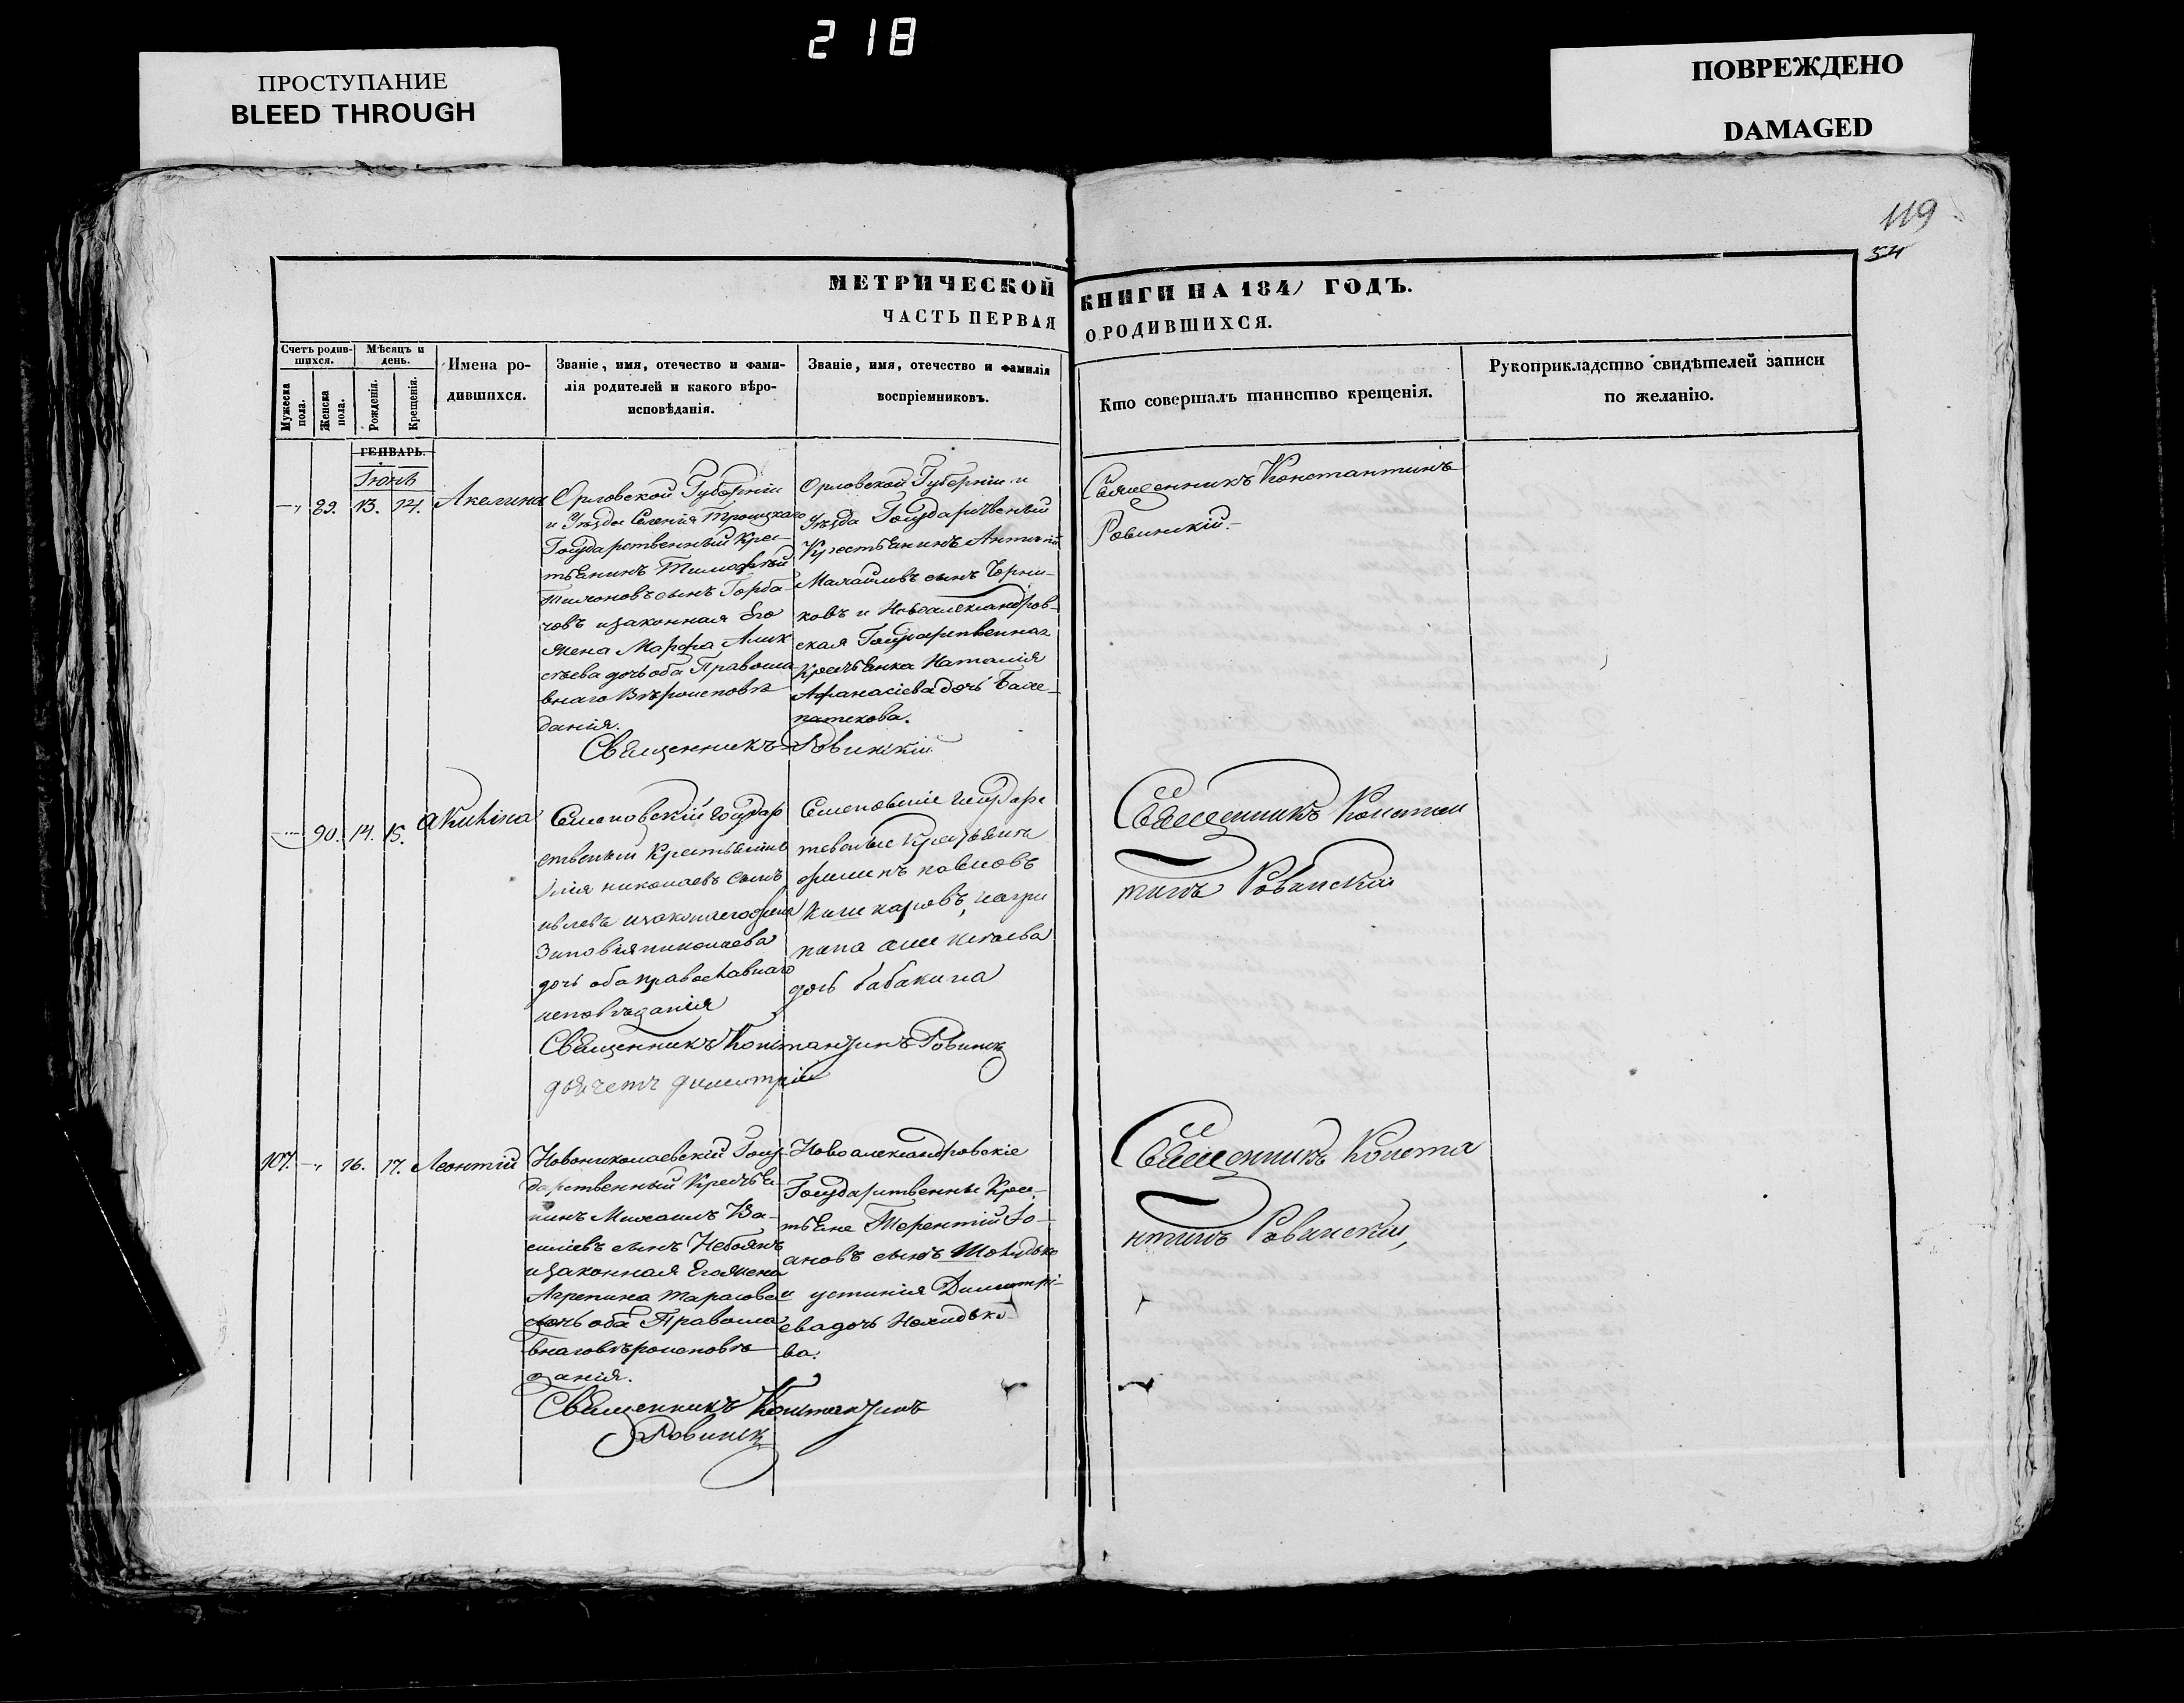 218
ПРОСТУПАНИЕ
BLEED THROUGH
ПОВРЕЖДЕНО
DAMAGED
119
54
МЕТРИЧЕСКОЙ КНИГИ НА 184 ГОДЪ.
ЧАСТЬ ПЕРВАЯ О РОДИВШИХСЯ.
Счетъ родив-
шихся.
Мужеска пола.
Женска пола.
Мѣсяцъ и
день.
Рожденія.
Крещенія.
Имена ро-
дившихся.
Званіе, имя, отечество и фами-
лія родителей и какого вѣро-
исповѣданія.
Званіе, имя, отечество и фамилія
воспріемниковъ.
Кто совершалъ таинство крещенія.
Рукоприкладство свидѣтелей записи
по желанію.
ГЕНВАРЬ.
Іюнь
89. 13. 14. Акелина
Орловской Губерніи
и Уѣзда Селенія Троицкаго
Государственный Крес-
тьянинъ Тимофѣй
Тихоновъ сынъ Горба-
човъ и законная Его
жена Марфа Алек
сѣева дочь оба Правосла
внаго Вѣроисповѣ
данія.
Орловской Губерніи и
Уѣзда Государственый
Крестьянинъ
сынъ Чорни-
ковъ и Новоалександров-
ская Государственная
Крестьянка Наталія
Афанасіева дочь
Священникъ Ровинскій
Священникъ Константинъ
Ровинскій.
90. 14. 15. Акилина
Семеновскій Государ
ственый Крестьянинъ
Илія николаевъ сынъ
и законая его жена
Зиновія николаева
дочь оба православнаго
исповѣданія
Семеновскіе государс
твеные Крестьяне
филипъ павловъ
дочь бабакина
Священникъ Константинъ Ровинск
дьячетъ димитрій
Священникъ Констан
тинъ Ровинскій
107. 16. 17. Леонтій
Новониколаевскій Госу-
дарственный Крестья-
нинъ Михаилъ Ва-
силіевъ сынъ
и законная Его жена
Агрепина Тарасова
дочь оба Правосла
внаго вѣроисповѣ
данія.
Новоалександровскіе
Государственны Крес-
тьяне Терентій Іо-
ановъ сынъ
и устинія Димитрі-
ева дочь
ва.
Священникъ Константинъ
Ровинск
Священникъ Конста
нтинъ Ровинскій,